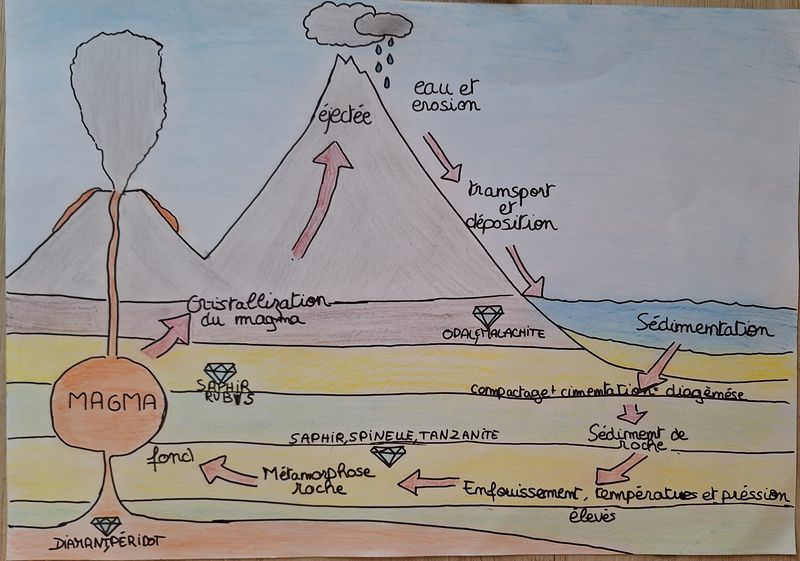 éjectée
eau et
erosion
transport
et
déposition
Cristallization
du magma
OPALE, MALACHITE
Sédimentation
MAGMA
SAPHIR
RUBYS
compactage + cimentation = diagénése
SAPHIR, SPINELLE, TANZANITE
Sédiment de
roche
fond
Métamorphose
roche
Enfouissement, températures et préssion
élevés
DIAMANT, PÉRIDOT